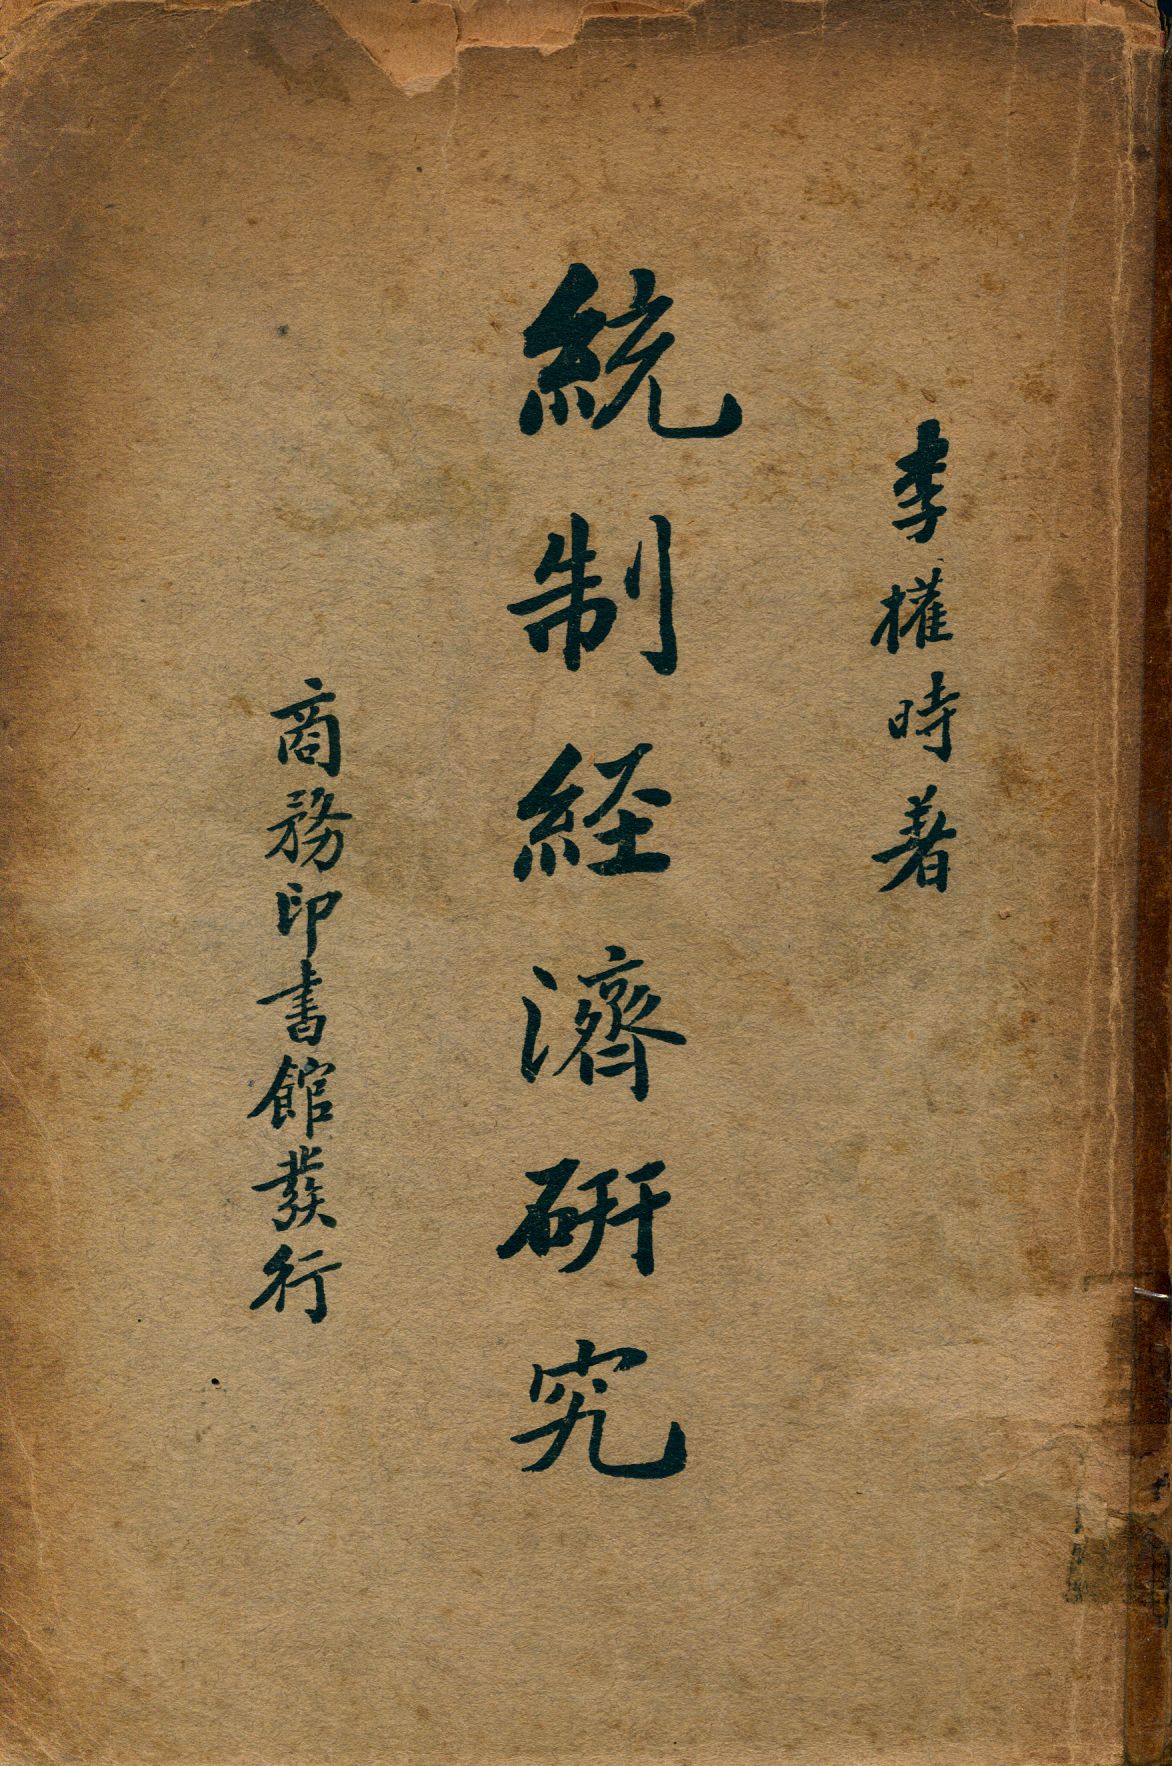 李權時著
統制経濟研究
商務印書館發行